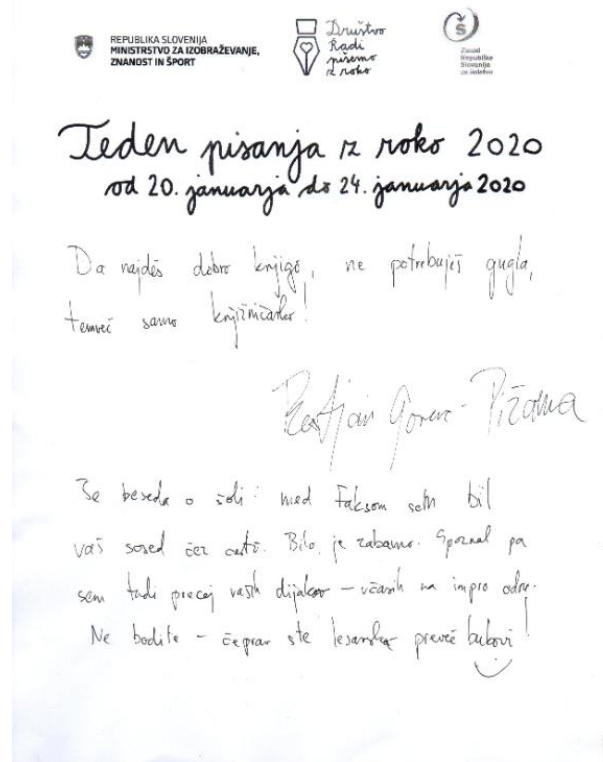 REPUBLIKA SLOVENIJA
MINISTRSTVO ZA IZOBRAŽEVANJE,
ZNANOST IN ŠPORT
Društvo
Radi
pišemo
z roko
Š
Zavod
Republike
Slovenije
za šolstvo
Teden pisanja z roko 2020
od 20. januarja do 24. januarja 2020
Da najdeš dobro knjigo, ne potrebuješ gugla,
temveč samo knjižničarko!
Boštjan Gorenc - Pižama
Še beseda o šoli: med faksom sem bil
vaš sosed čez cesto. Bilo je zabavno. Spoznal pa
sem tudi precej vaših dijakov – včasih na impro odru.
Ne bodite – čeprav ste lesarska preveč bukovi!